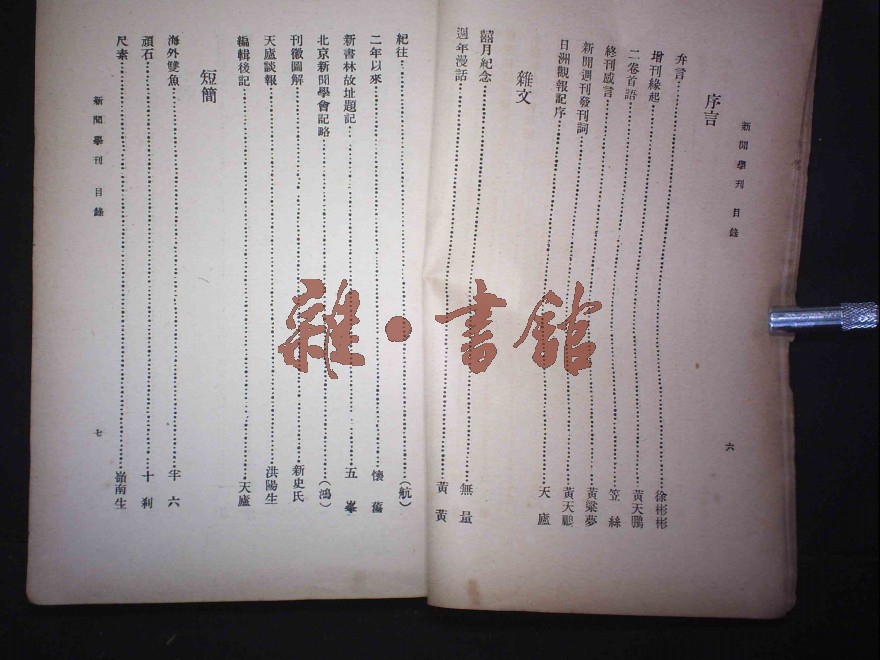 新聞學刊 目錄
六
序言
弁言
增刊緣起……徐彬彬
二卷首語……黃天鵬
終刊感言……笠絲
新聞週刊發刊詞……黃粱夢
日洲觀報記序……黃天鵬
天廬
雜文
囍月紀念……無量
週年漫話……黃黃
紀往……(航)
二年以來……懷舊
新書林故址題記……五峯
北京新聞學會記略……(鴻)
刊徽圖解……新史氏
天廬談報……洪陽生
編輯後記……天廬
短簡
海外雙魚……半六
頑石……十剎
尺素……嶺南生
新聞學刊 目錄
七
雜·書館